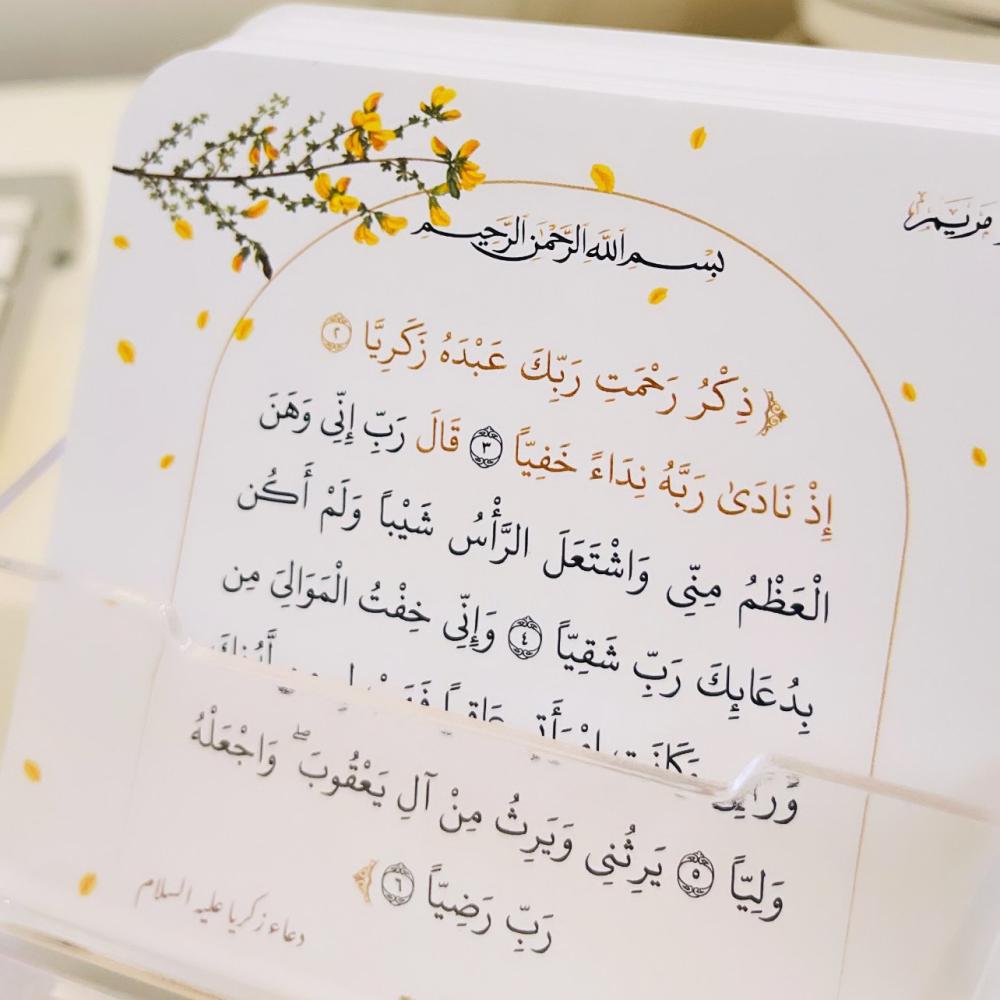 مريم
بسم الله الرحمن الرحيم
﴿ذِكْرُ رَحْمَتِ رَبِّكَ عَبْدَهُ زَكَرِيَّا ٢
إِذْ نَادَىٰ رَبَّهُ نِدَاءً خَفِيّاً ٣ قَالَ رَبِّ إِنِّي وَهَنَ
الْعَظْمُ مِنِّي وَاشْتَعَلَ الرَّأْسُ شَيْباً وَلَمْ أَكُن
بِدُعَايِٕكَ رَبِّ شَقِيّاً ٤ وَإِنِّي خِفْتُ الْمَوَالِيَ مِن
وَكَانَتِ امْرَأَتِي عَاقِراً
وَلِيّاً ٥ يَرِثُنِي وَيَرِثُ مِنْ آلِ يَعْقُوبَ ۖ وَاجْعَلْهُ
رَبِّ رَضِيّاً ٦﴾
دعاء زكريا عليه السلام